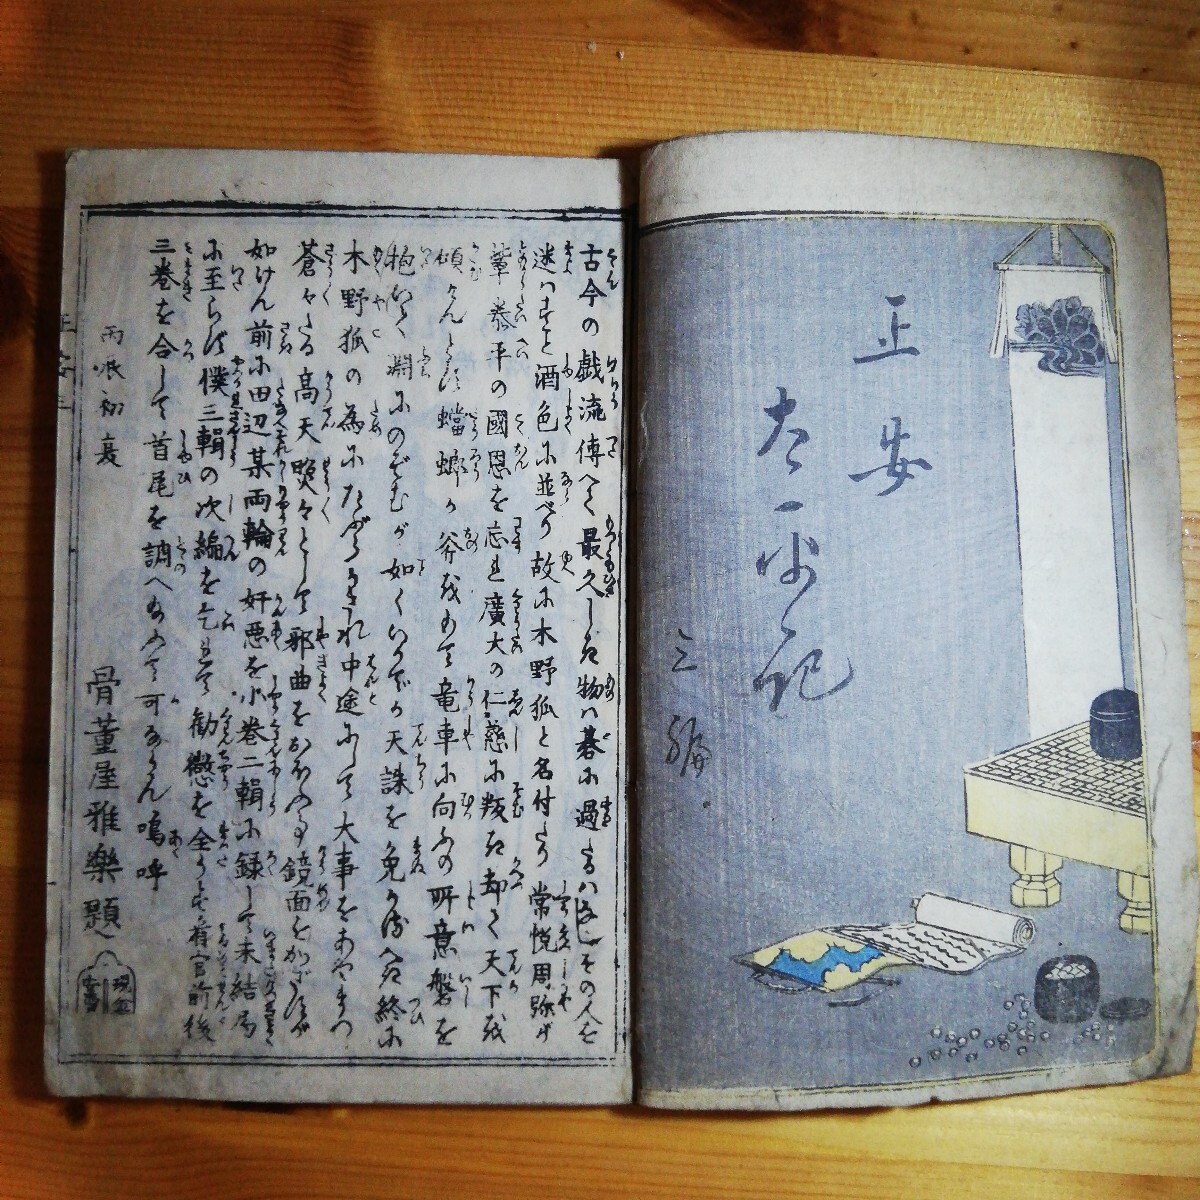 正安
太平記
三編
古今の戯流傳へて最久しき物ハ碁に過たるハなし其の人を
迷ハすこと酒色に並べり故に木野狐と名付たり常悦周弥が
輩泰平の國恩を忘れ廣大の仁慈に叛き却て天下を
傾けんとす蟷螂が斧をもて竜車に向ふの所意盤を
抱いて淵にのぞむが如くいかでか天誅を免かるべき終に
木野狐の為にたぶらかされ中途にして大事をあやまつ
蒼々たる高天熒々として邪曲をおほふ事鏡面をかざすが
如けん前に田辺某両輪の奸悪を小巻二輯に録して未結局
に至らず僕三輯の次編を乞れて勧懲を全うす看官前後
三巻を合して首尾を調へ給ふて可ならん嗚呼
丙
初夏
骨董屋雅樂題